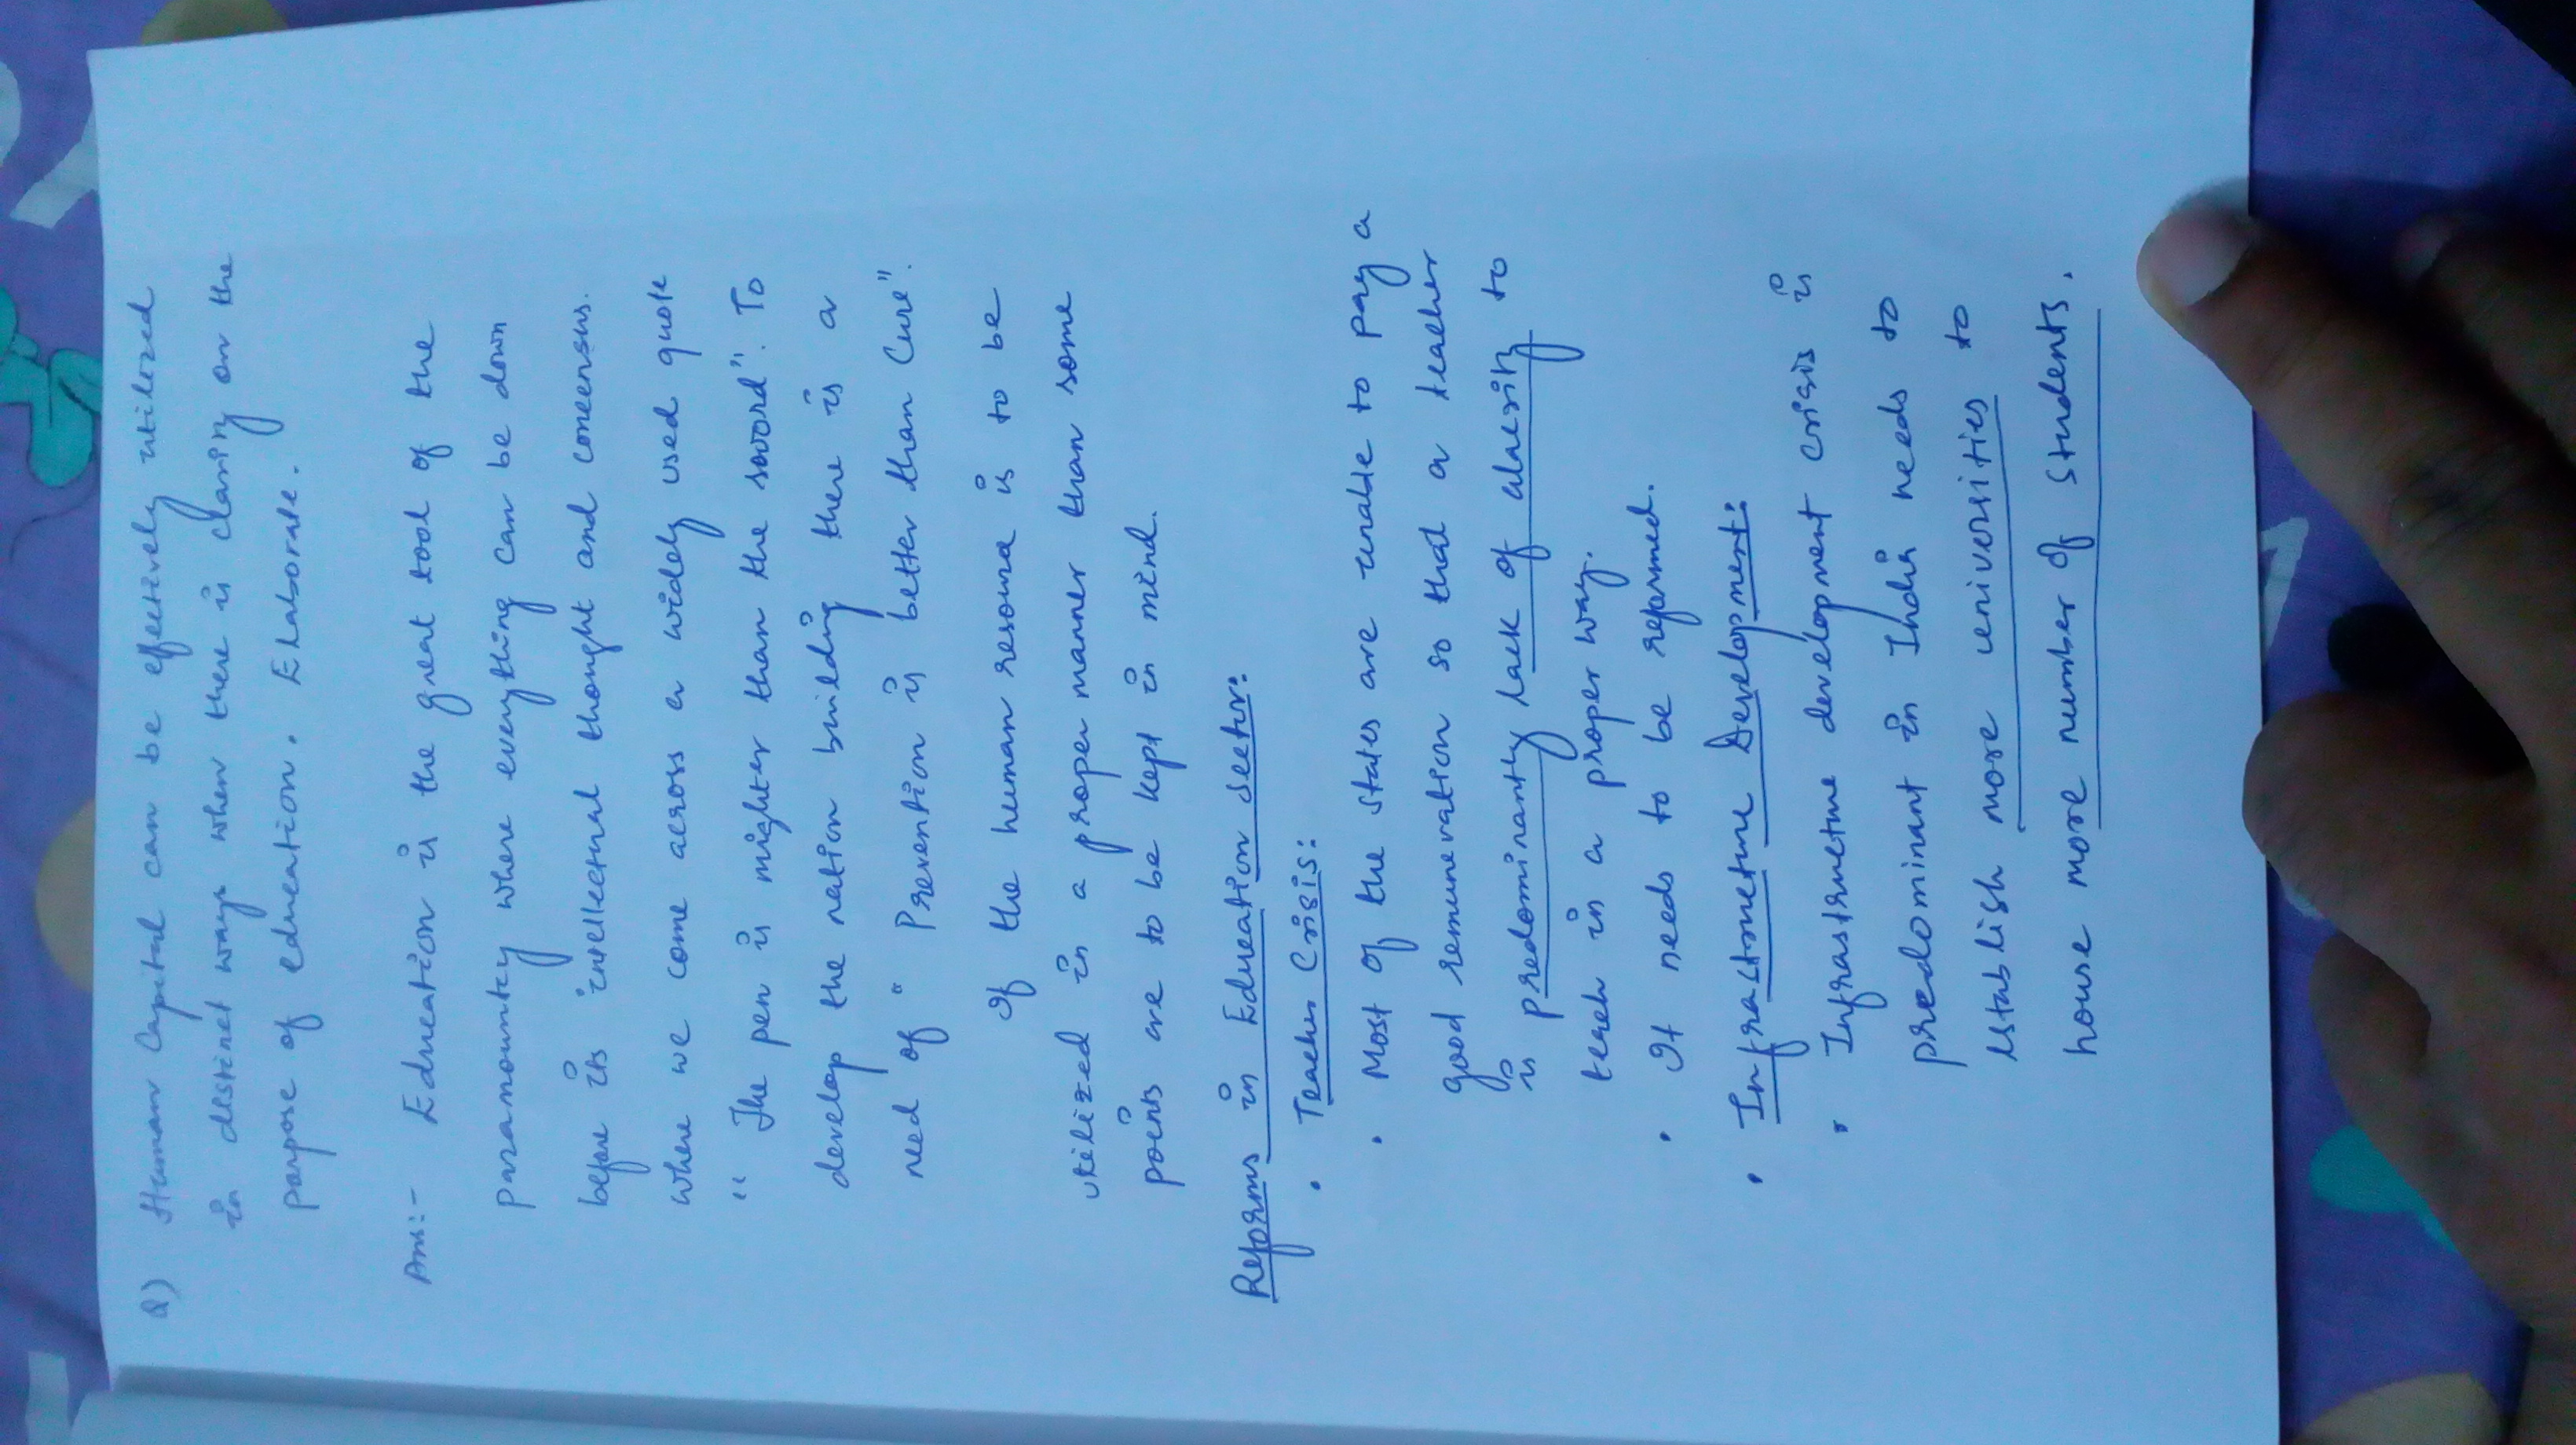 Q) Human Capital can be effectively utilized
in distinct ways when there is clarity on the
purpose of education. Elaborate.
Ans:- Education is the great tool of the
paramountcy where everything can be down
before its intellectual thought and concensus.
where we come across a widely used quote
"The pen is mighter than the sword". To
develop the nation building there is a
need of "Prevention is better than Cure".
If the human resource is to be
utilized in a proper manner than some
points are to be kept in mind.
Reforms in Education Sector:
• Teacher Crisis:
• Most of the states are unable to pay a
good remunevation so that a teacher
is predominantly lack of alacrity to
teach in a proper way.
• It needs to be reformed.
• Infrastructure Development:
• Infrastructure development crisis is
predominant in India needs to
establish more universities to
house more number of students.